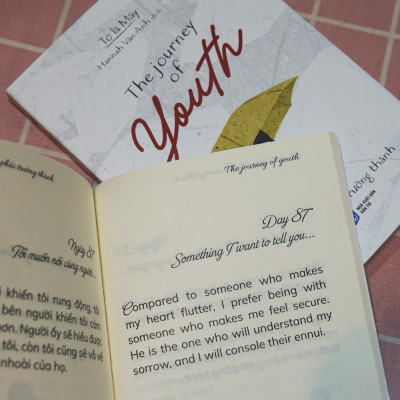 Tớ là Mây
Hannah Vân Anh dịch
The journey
of
Youth
trưởng thành
NHÀ XUẤT BẢN
DÂN TRÍ
phải trưởng thành
Ngày 87
Tôi muốn nói cùng người...
i khiến tôi rung động, tôi
bên người khiến tôi cảm
ơn. Người ấy sẽ hiểu được
tôi, còn tôi cũng sẽ vỗ về
nhoài của họ.
The journey of youth
Day 87
Something I want to tell you...
Compared to someone who makes
my heart flutter, I prefer being with
someone who makes me feel secure.
He is the one who will understand my
sorrow, and I will console their ennui.